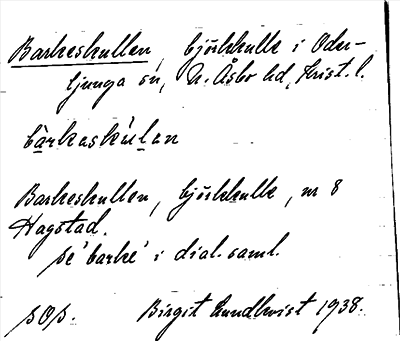 Barkeskullen, björkkulle i Oder-
ljunga sn, N. Åsbo hd, Krist. l.
bàrkaskùlan
Barkeskullen, björkkulle, nr 8
Hagstad.
se 'barke' i dial. saml.
sOs. Birgit Lundkvist 1938.